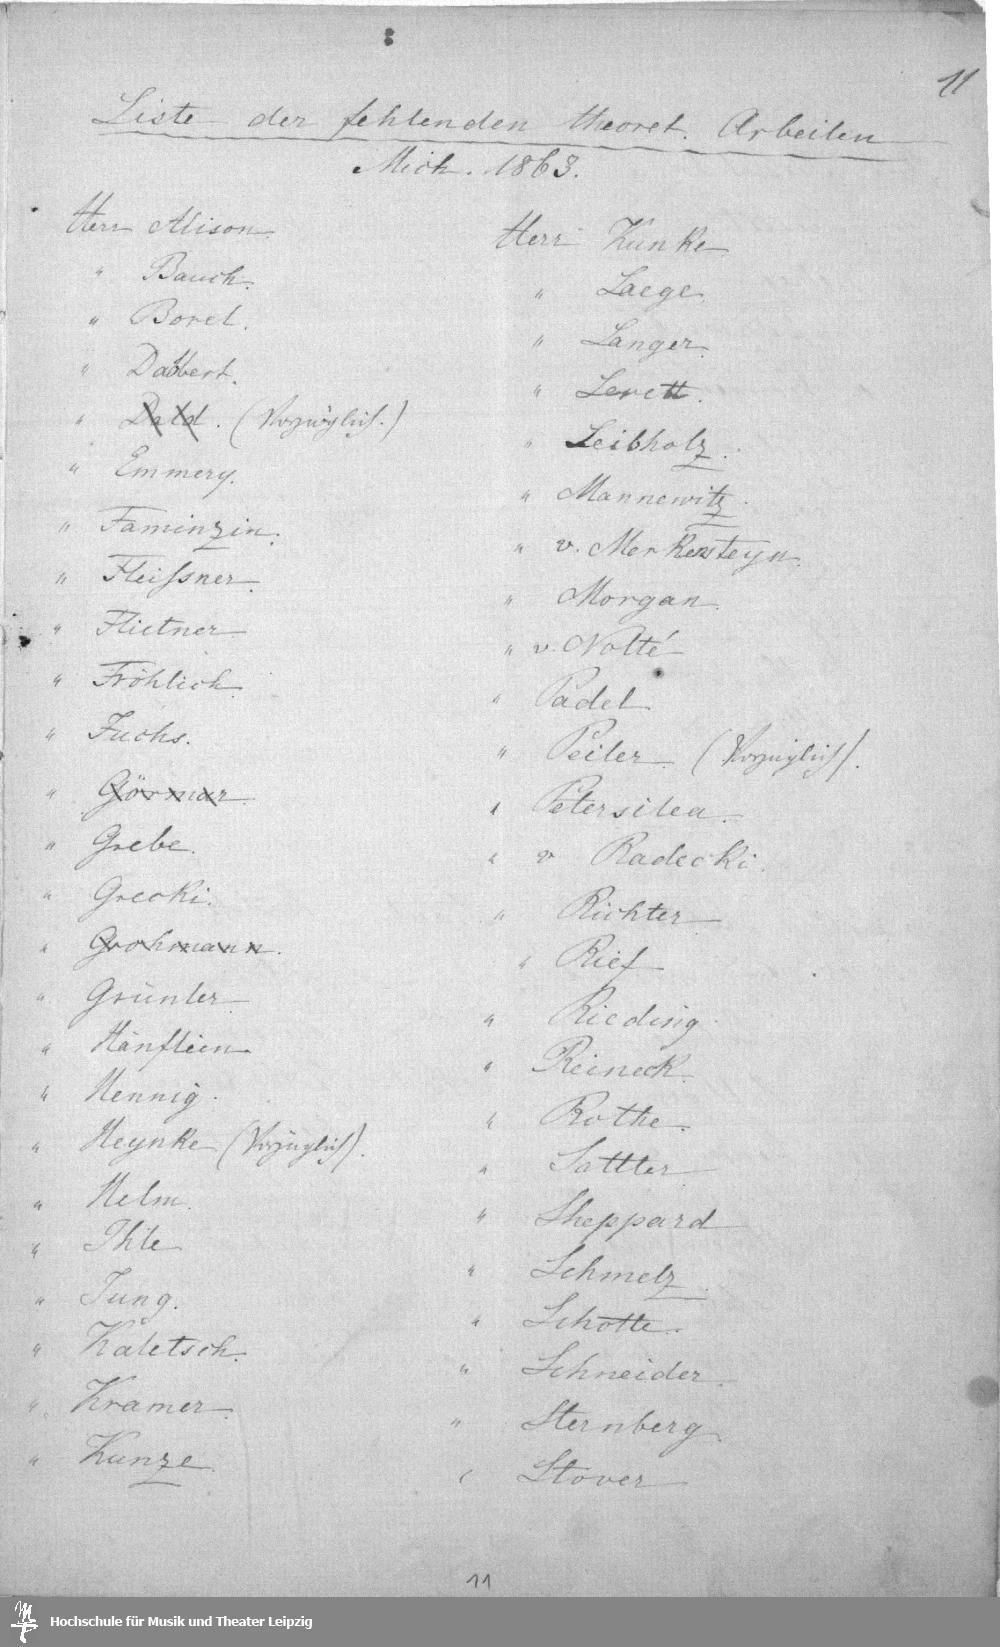 11
Liste der fehlenden theoret. Arbeiten
Mich. 1863.
Herr Alison.
" Bauch.
" Borel.
" Dabbert.
" Dald. (Vorzüglich.)
" Emmery.
" Faminzin.
" Fleissner.
" Flietner
" Fröhlich.
" Fuchs.
" Görmar.
" Grebe.
" Grecki.
" Grohmann.
" Grünler
" Hänflein
" Hennig.
" Heynke (Vorzüglich).
" Helm.
" Ihle
" Jung.
" Kaletsch.
" Kramer.
" Kunze
Herr Kunke
" Laege
" Langer.
" Lerett.
" Leibholz.
" Mannewitz.
" v. Merkensteyn.
" Morgan.
" v. Nolté
" Padel
" Peiler. (Vorzüglich).
" Petersilea.
" v Radecki.
" Richter
" Rief
" Rieding
" Reineck.
" Rothe.
" Sattler
" Sheppard
" Schmelz
" Schotte.
" Schneider
" Sternberg
" Stover
11
Hochschule für Musik und Theater Leipzig